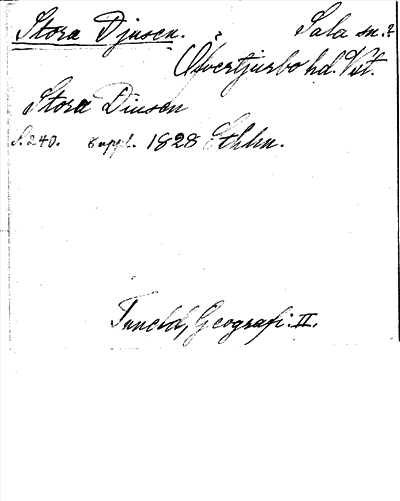 Stora Djusen. Sala sn.?
Öfvertjurbo hd. Vst.
Stora Diusen
S. 240. suppl. 1828 Ethln.
Tuneld, Geografi. II.